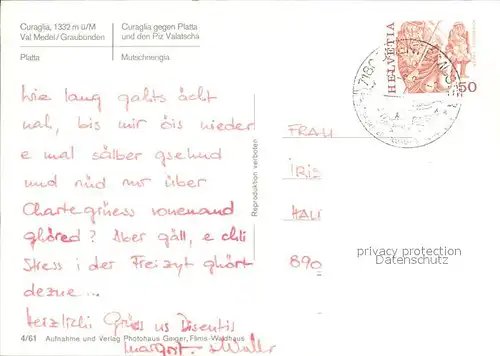 Curaglia, 1332 m ü/M
Val Medel/Graubünden
Platta
Curaglia gegen Platta
und den Piz Valatscha
Mutschnengia
HELVETIA
50
Wie lang gahts ächt
nah, bis mir öis wieder
e mal sälber gsehnd
und nüd nur über
Chartegrüess vonenand
ghöred? Aber gäll, e chli
Stress i der Freizyt ghört
dezue...
Herzlichi Grüess us Disentis
Margort. + Walti
FRAU
IRIS
890
Reproduktion verboten
privacy protection
Datenschutz
4/61 Aufnahme und Verlag Photohaus Geiger, Flims-Waldhaus